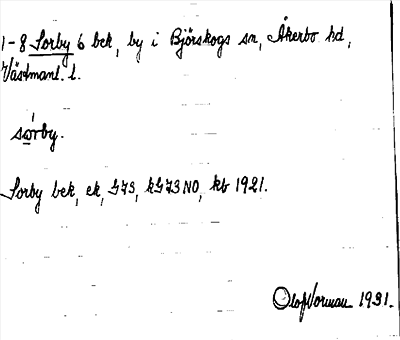 1-8 Sorby 6 bek, by i Björskogs sn, Åkerbo hd,
Västmanl. l.
sórby.
Sorby bek, ek, G73, kG73NO, kb 1921.
Olof Norman 1931.